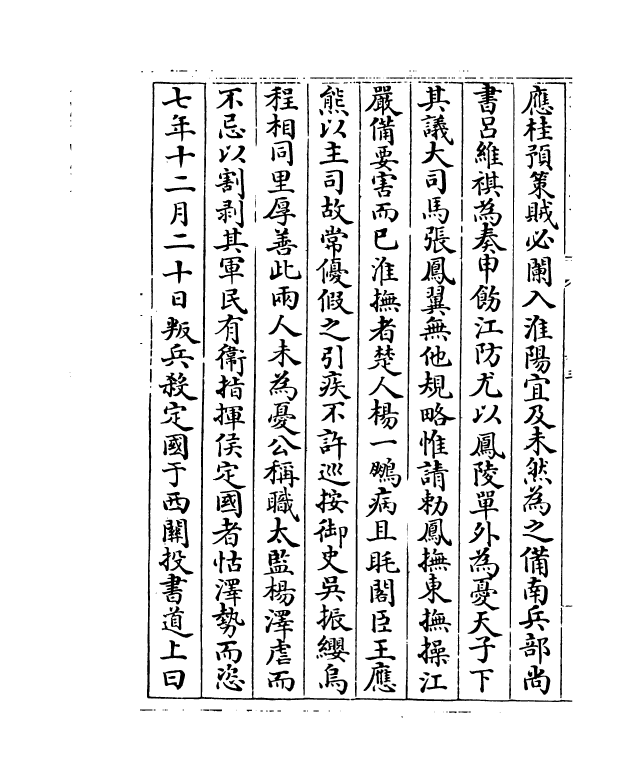 應桂預策賊必闌入淮陽宜及未然為之備南兵部尚
書呂維祺為奏申飭江防尤以鳳陵單外為憂天子下
其議大司馬張鳳翼無他規略惟請勅鳳撫東撫操江
嚴備要害而已淮撫者楚人楊一鵬病且眊閣臣王應
熊以主司故常優假之引疾不許巡按御史吳振纓烏
程相同里厚善此兩人未為憂公稱職太監楊澤虐而
不忌以割剥其軍民有衛指揮侯定國者怙澤勢而恣
七年十二月二十日叛兵殺定國于西關投書道上曰